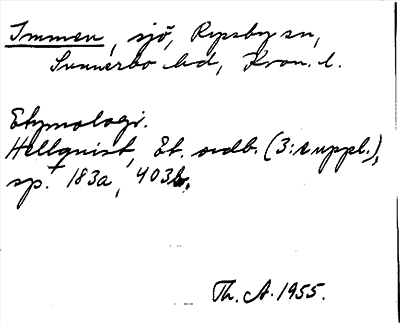 Immen, sjö, Ryssby sn,
Sunnerbo hd, Kron. l.
Etymologi.
Hellquist, Et. ordb. (3: suppl.),
sp. 183a, 403b.
Th. A. 1955.